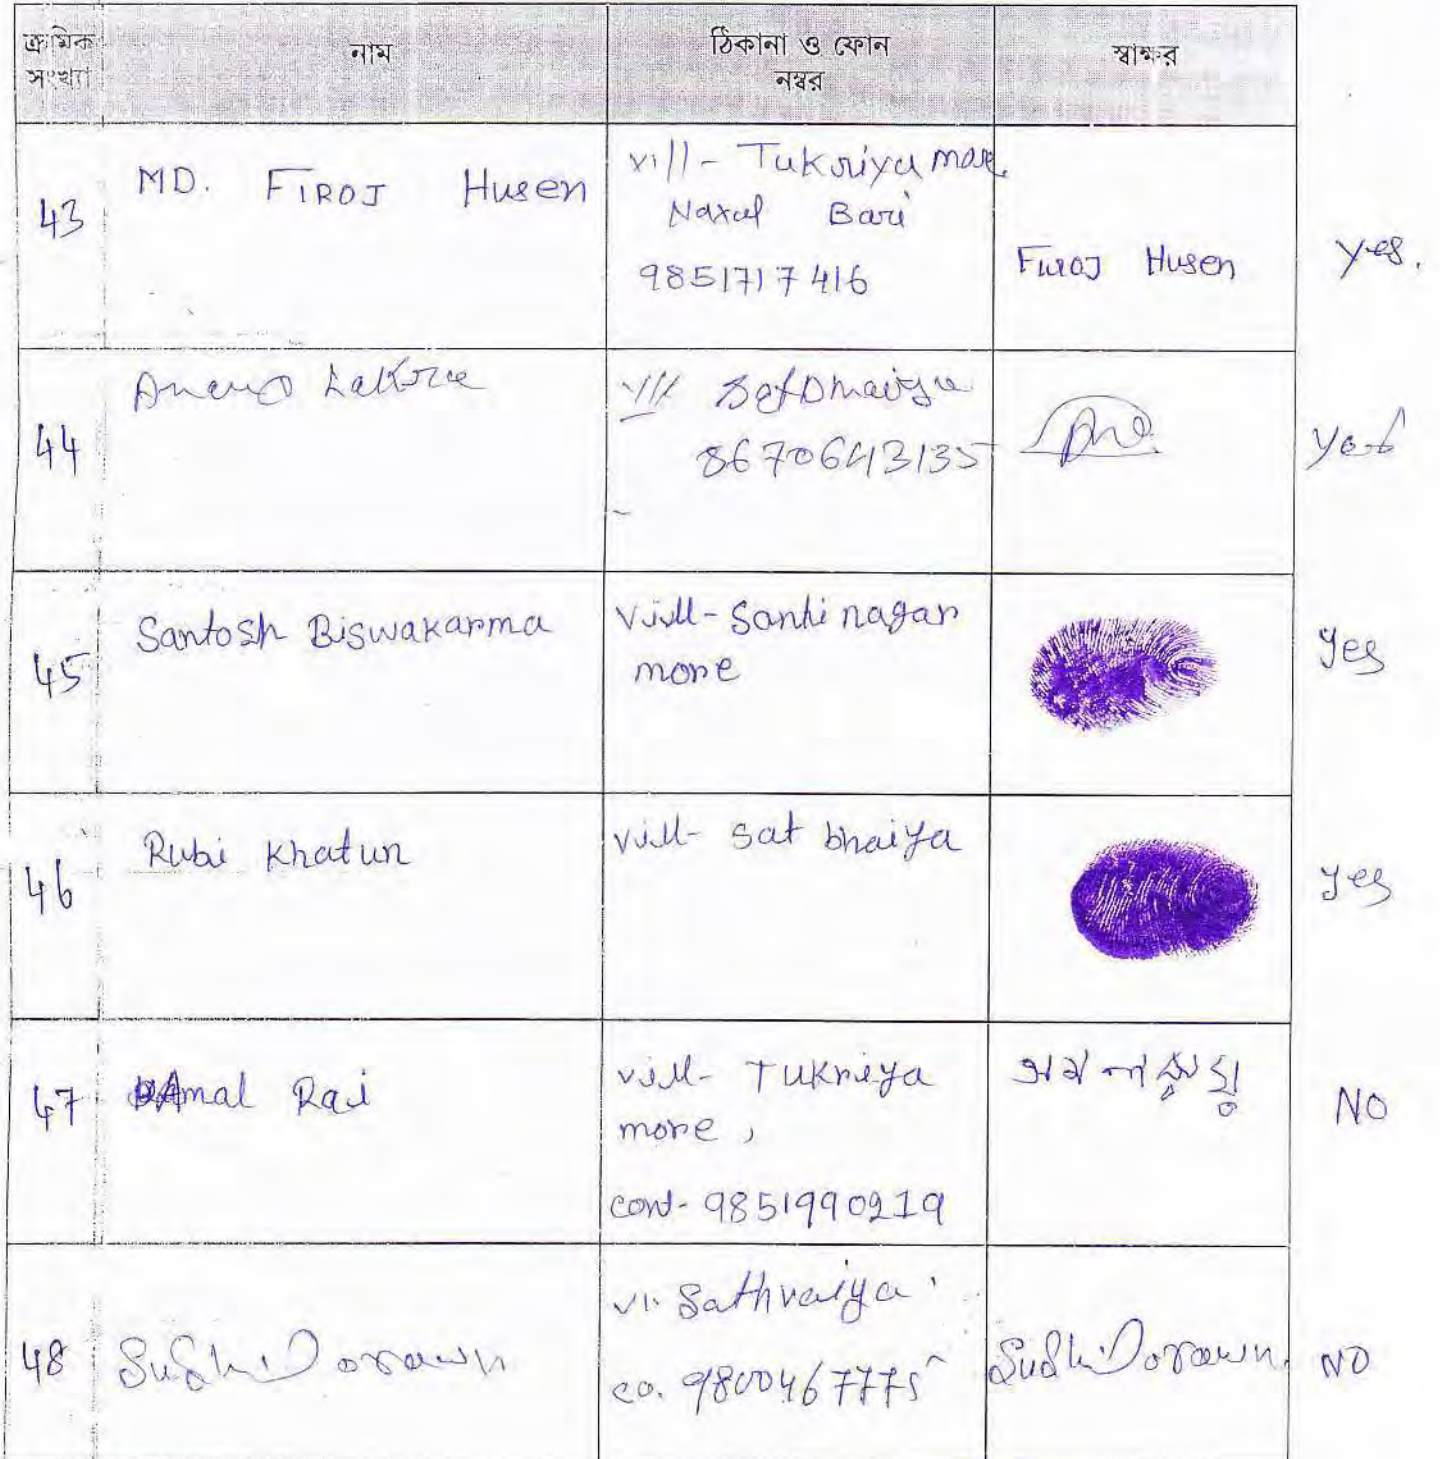 ক্রমিক সংখ্যা নাম ঠিকানা ও ফোন নম্বর স্বাক্ষর
43 MD. FIROJ Husen vill- Tukriya more
Naxal Bari
9851717416 Firoj Husen yes.
44 Lakra vill
8670643135 yes
45 Santosh Biswakarma vill- Santi nagar
more yes
46 Rubi Khatun vill- Sat bhaiya yes
47 Amal Rai vill- Tukriya
more,
cont- 9851990219 NO
48 vi. Sathvaiya
co. 9800467775 NO